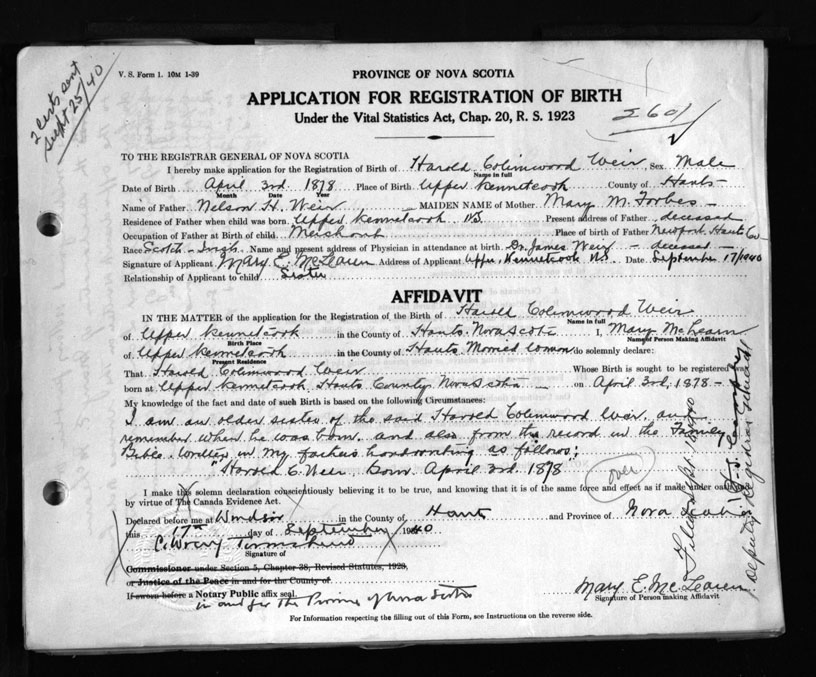 V. S. Form 1. 10M 1-39
2 certs sent
Sept 25/40
PROVINCE OF NOVA SCOTIA
APPLICATION FOR REGISTRATION OF BIRTH
Under the Vital Statistics Act, Chap. 20, R. S. 1923
TO THE REGISTRAR GENERAL OF NOVA SCOTIA
I hereby make application for the Registration of Birth of Harold Colinwood Weir Sex Male
Name in full
Date of Birth April 3rd 1878 Place of Birth Upper Kennetcook County of Hants
Month Date Year
Name of Father Nelson H. Weir MAIDEN NAME of Mother Mary M. Forbes
Residence of Father when child was born Upper Kennetcook NS Present address of Father deceased
Occupation of Father at Birth of child Merchant Place of birth of Father Newport Hants Co
Race Scotch - Irish Name and present address of Physician in attendance at birth Dr. James Weir - deceased -
Signature of Applicant Mary E. McLearn Address of Applicant Upper Kennetcook N.S. Date September 17/1940
Relationship of Applicant to child Sister
AFFIDAVIT
IN THE MATTER of the application for the Registration of the Birth of Harold Colinwood Weir
Name in full
of Upper Kennetcook in the County of Hants Nova Scotia I, Mary McLearn
Birth Place Name of Person Making Affidavit
of Upper Kennetcook in the County of Hants Married woman do solemnly declare:
Present Residence
That Harold Colinwood Weir Whose Birth is sought to be registered
born at Upper Kennetcook Hants County Nova Scotia on April 3rd, 1878 -
My knowledge of the fact and date of such Birth is based on the following Circumstances:
I am an older sister of the said Harold Colinwood Weir and
remember when he was born and also from the record in the Family
Bible written in my father's handwriting as follows;
"Harold C. Weir Born April 3rd 1878"
over
I make this solemn declaration conscientiously believing it to be true, and knowing that it is of the same force and effect as if made under oath
by virtue of The Canada Evidence Act.
Declared before me at Windsor in the County of Hants and Province of Nova Scotia
this 17th day of September 1940
Signature of
Commissioner under Section 5, Chapter 38, Revised Statutes, 1923,
or Justice of the Peace in and for the County of
If sworn before a Notary Public affix seal
in and for the Province of Nova Scotia
Mary E. McLearn
Signature of Person making Affidavit
For Information respecting the filling out of this Form, see Instructions on the reverse side.
Deputy Registrar General